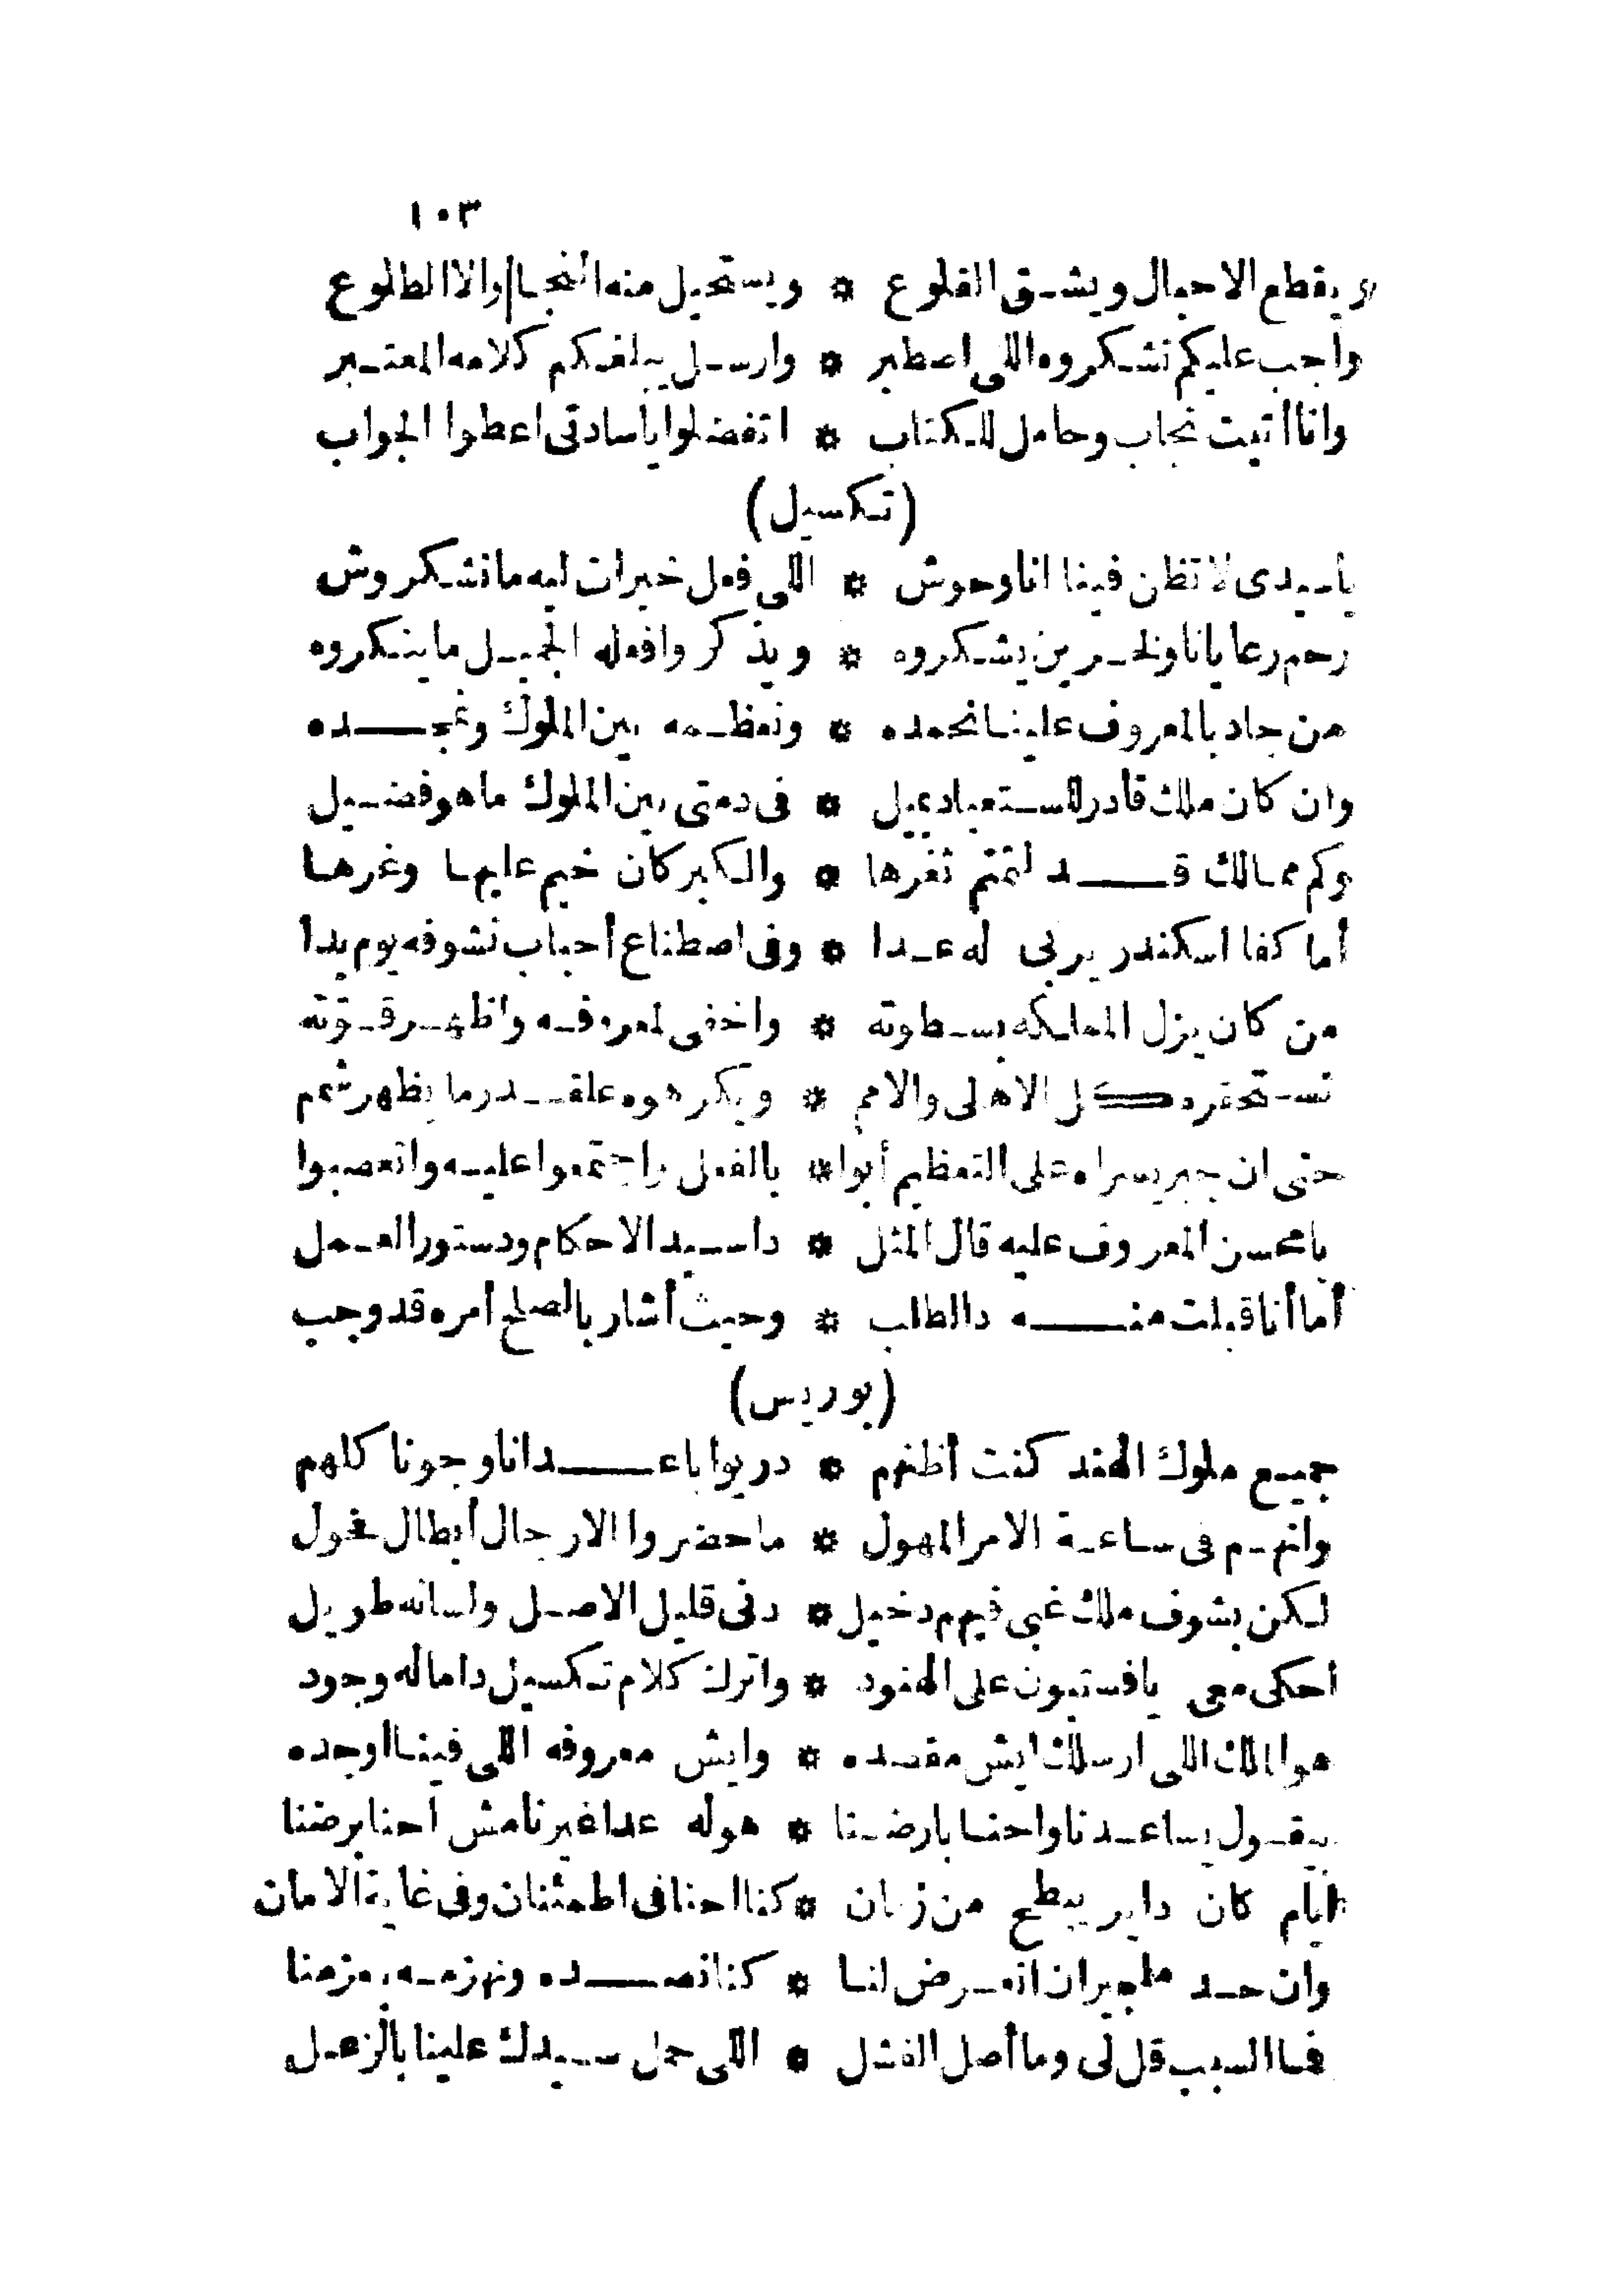 ١٠٣
ويقطع الاحبال ويشق القلوع * ويستحيل منه النجا والا الطلوع
واجب عليكم تشكروه اللى اصطبر * وارسل يبلغكم كلامه المعتبر
وانا أتيت نجاب وحامل للكتاب * اتفضلوا ياسادتى اعطوا الجواب
(تكسيل)
ياسيدى لا تظن فينا انا وحوش * اللى فعل خيرات ليه مانشكروش
رحم رعايانا ونحن يشكروه * ويذكروا فعله الجميل ما ينكروه
من جاد بالمعروف علينا نحمده * ونعظمه بين الملوك ونمجده
وان كان ملك قادر للاستعباد يميل * فى ذمتى بين الملوك ما هو فضيل
وكم ممالك قد لتمتم ثغرها * والكبر كان خيم عليها وغرها
أما كفا اسكندر يربى له عدا * وفى اصطناع أحباب نشوفه يوم بدا
من كان يزل المملكه بسطوته * واخفى لمعروفه واظهر قوّته
تستحقره كل الاهلى والامم * ويكرهوه علقدر ما يظهر شمم
حتى ان جبر يسراه على التعظيم أبوا * بالفعل واجتمعوا عليه واتعصبوا
يا محسن المعروف عليه قال المثل * دا سيد الاحكام ودستور العمل
أما أنا قبلت منه دا الطلب * وحيث أشار بالصلح أمره قد وجب
(بوريس)
جميع ملوك الهند كنت أظنهم * دريوا باعدانا وجونا كلهم
وانهم فى ساعة الامر المهول * ما حضروا الا رجال أبطال فحول
لكن بشوف ملك غبى فيهم دخيل * دنى قليل الاصل ولسانه طويل
احكى معى يا فستيون على الهنود * واترك كلام تكسيل دا ماله وجود
هو الملك اللى ارسلك ايش مقصده * وايش معروفه اللى فينا اوجده
بيقول يساعدنا واحنا بارضنا * هو له عدا غيرنا مش احنا برضنا
ايام كان داير يبطح من زمان * كنا احنا فى اطمئنان وفى غاية الامان
وان حد ملجيران اتعرض لنا * كنا نصده ونهزمه بعزمنا
فما السبب قل لى وما أصل الفشل * اللى حمل سيدك علينا بالزعل